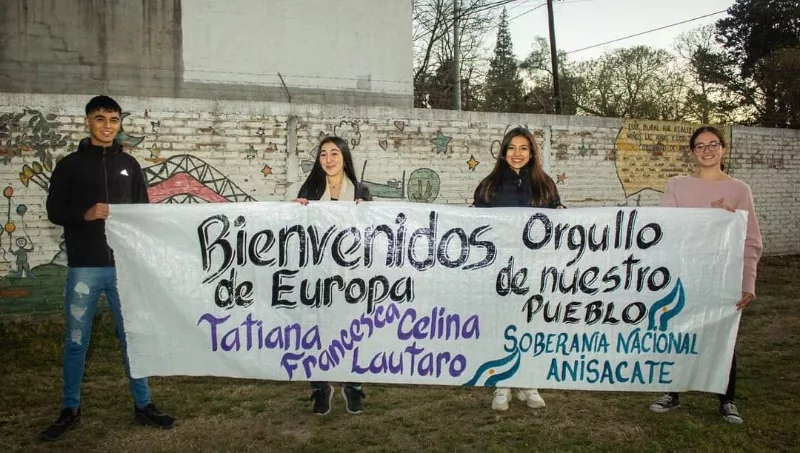 Bienvenidos
de Europa
Tatiana
Francesca
Celina
Lautaro
Orgullo
de nuestro
PUEBLO
SOBERANIA NACIONAL
ANISACATE
adidas